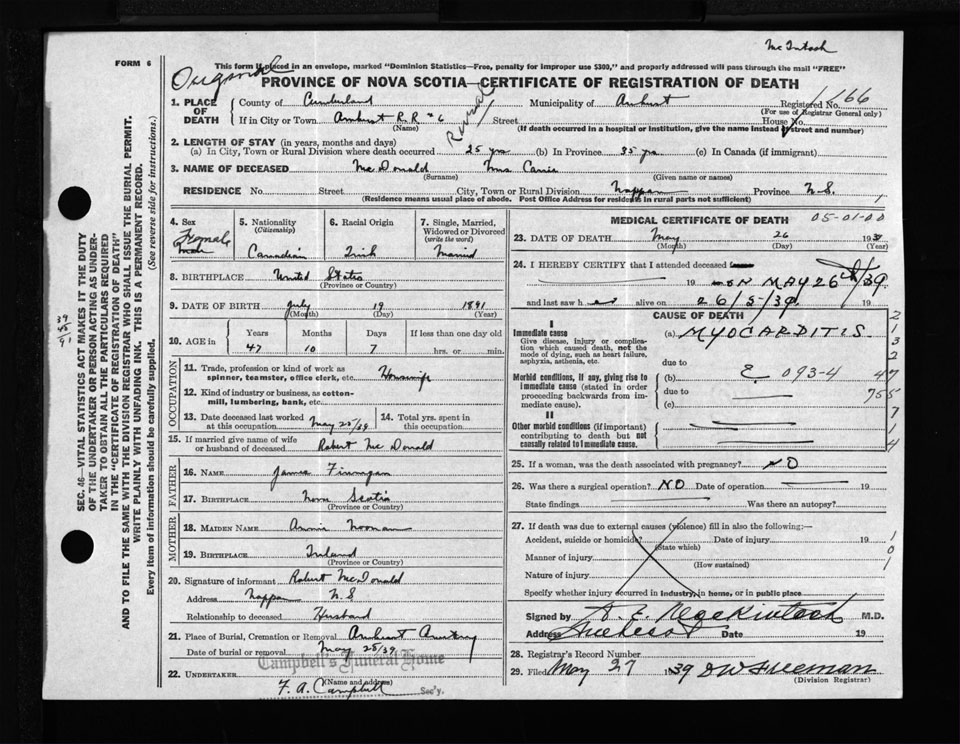 McIntosh
FORM 6
Original
This form if placed in an envelope, marked "Dominion Statistics—Free, penalty for improper use $300," and properly addressed will pass through the mail "FREE"
PROVINCE OF NOVA SCOTIA—CERTIFICATE OF REGISTRATION OF DEATH
1. PLACE OF DEATH County of Cumberland Municipality of Amherst Registered No. 1166
(For use of Registrar General only)
If in City or Town Amherst R.R #6 Rural Street House No.
(Name) (If death occurred in a hospital or institution, give the name instead of street and number)
2. LENGTH OF STAY (in years, months and days)
(a) In City, Town or Rural Division where death occurred 25 yrs (b) In Province 35 yrs (c) In Canada (if immigrant)
3. NAME OF DECEASED McDonald Mrs. Carrie
(Surname) (Given name or names)
RESIDENCE No. Street City, Town or Rural Division Nappan Province N.S.
(Residence means usual place of abode. Post Office Address for residents in rural parts not sufficient)
4. Sex Female
5. Nationality (Citizenship) Canadian
6. Racial Origin Irish
7. Single, Married, Widowed or Divorced (write the word) Married
8. BIRTHPLACE United States
(Province or Country)
9. DATE OF BIRTH July 19 1891
(Month) (Day) (Year)
10. AGE in Years Months Days If less than one day old
47 10 7 hrs. or min.
OCCUPATION
11. Trade, profession or kind of work as spinner, teamster, office clerk, etc. Housewife
12. Kind of industry or business, as cotton-mill, lumbering, bank, etc.
13. Date deceased last worked at this occupation May 25/39
14. Total yrs. spent in this occupation
15. If married give name of wife or husband of deceased Robert McDonald
FATHER
16. NAME James Finnigan
17. BIRTHPLACE Nova Scotia
(Province or Country)
MOTHER
18. MAIDEN NAME Annie Noonan
19. BIRTHPLACE Ireland
(Province or Country)
20. Signature of informant Robert McDonald
Address Nappan N.S
Relationship to deceased Husband
21. Place of Burial, Cremation or Removal Amherst
Date of burial or removal May 28/39
Campbell's Funeral Home
22. UNDERTAKER (Name and address)
F. A. Campbell Sec'y.
MEDICAL CERTIFICATE OF DEATH 05-01-00
23. DATE OF DEATH May 26 1939
(Month) (Day) (Year)
24. I HEREBY CERTIFY that I attended deceased
19 ON MAY 26th/39
and last saw h er alive on 26/5/39
CAUSE OF DEATH
I
Immediate cause
Give disease, injury or complication which caused death, not the mode of dying, such as heart failure, asphyxia, asthenia, etc.
(a) MYOCARDITIS
due to
Morbid conditions, if any, giving rise to immediate cause (stated in order proceeding backwards from immediate cause).
(b) 093-4
due to
(c)
II
Other morbid conditions (if important) contributing to death but not causally related to immediate cause.
25. If a woman, was the death associated with pregnancy? NO
26. Was there a surgical operation? NO Date of operation 19
State findings Was there an autopsy?
27. If death was due to external causes (violence) fill in also the following:—
Accident, suicide or homicide? Date of injury 19
(State which)
Manner of injury
(How sustained)
Nature of injury
Specify whether injury occurred in industry, in home, or in public place
Signed by A. E. Mackintosh M.D.
Address Amherst Date 19
28. Registrar's Record Number
29. Filed May 27 1939 DW Freeman
(Division Registrar)
SEC. 46—VITAL STATISTICS ACT MAKES IT THE DUTY
OF THE UNDERTAKER OR PERSON ACTING AS UNDER-
TAKER TO OBTAIN ALL THE PARTICULARS REQUIRED
IN THE "CERTIFICATE OF REGISTRATION OF DEATH"
AND TO FILE THE SAME WITH THE DIVISION REGISTRAR WHO SHALL ISSUE THE BURIAL PERMIT.
WRITE PLAINLY WITH UNFADING INK. THIS IS A PERMANENT RECORD.
Every item of information should be carefully supplied. (See reverse side for instructions.)